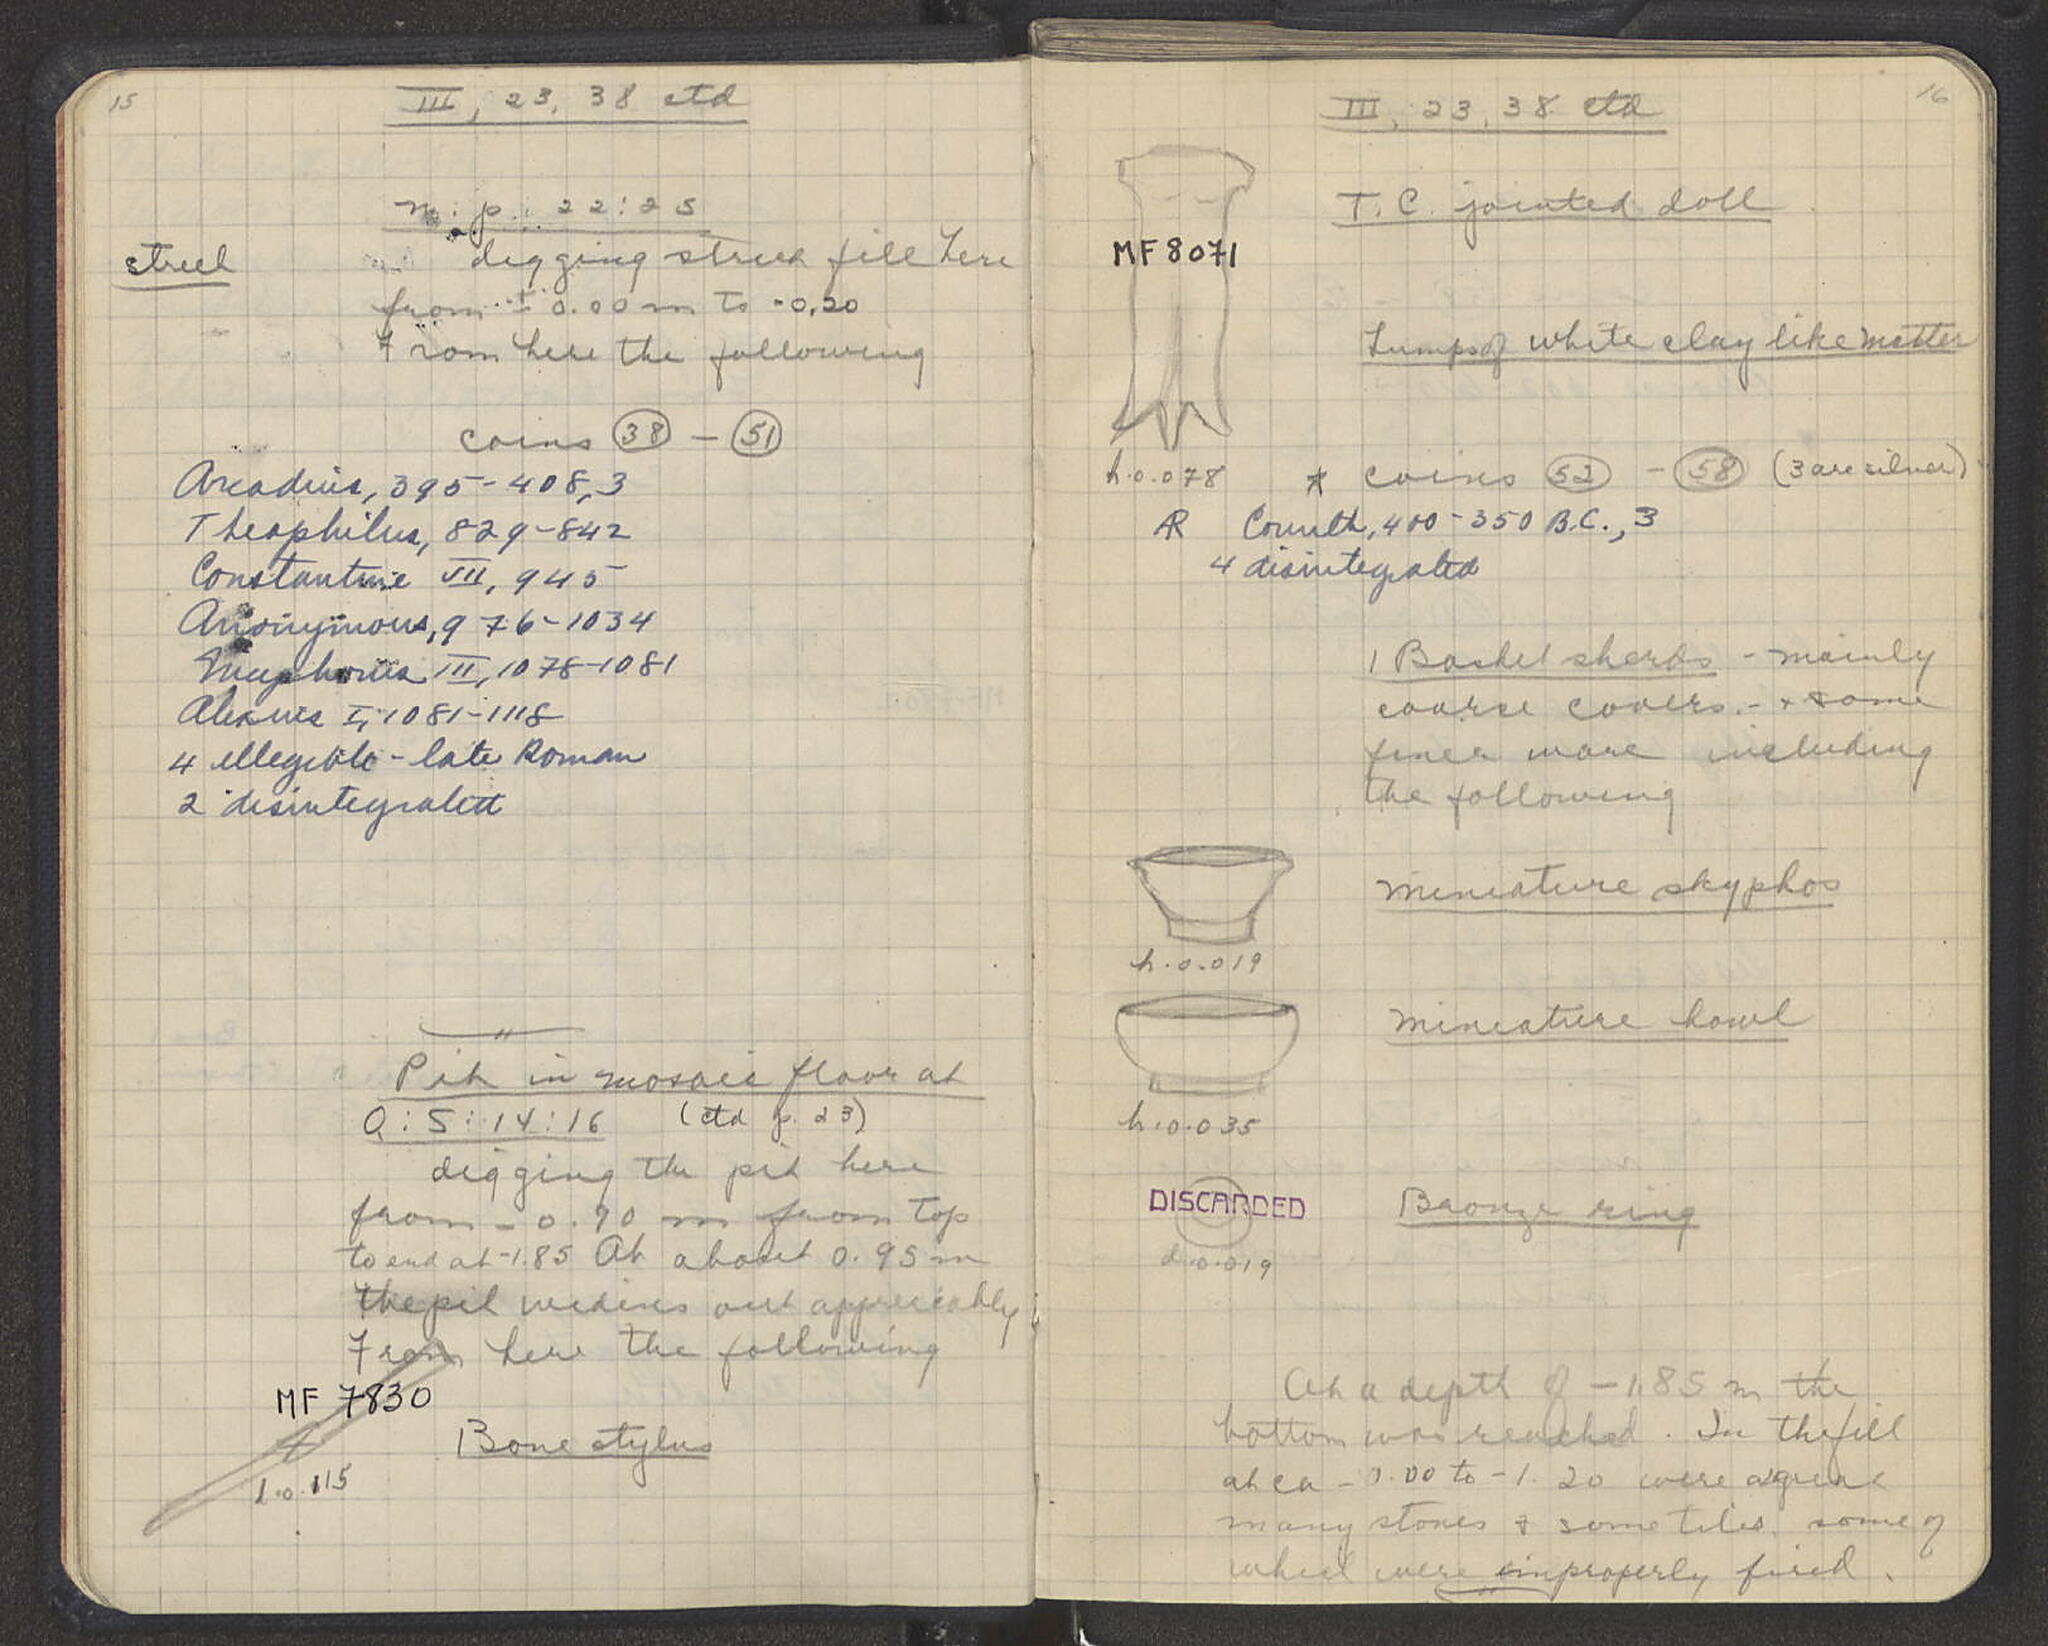 15
III, 23, 38 ctd
m. p. 22:25
street
digging street fill here
from ± 0.00 m to -0.20
From here the following
coins 38 - 51
Arcadius, 395-408, 3
Theophilus, 829-842
Constantine VII, 945
Anonymous, 976-1034
Nicephorus III, 1078-1081
Alexius I, 1081-1118
4 illegible - late Roman
2 disintegrated
Pit in mosaic floor at
Q:5:14:16 (ctd p. 23)
digging the pit here
from -0.70 m from top
to end at -1.85 At about 0.95 m
the pit widens out appreciably
From here the following
MF 7830
Bone stylus
l.0.115
16
III, 23, 38 ctd
T.C. jointed doll
MF 8071
Lumps of white clay like matter
h.0.078
* coins 52 - 58 (3 are silver)
AR Corinth, 400-350 B.C., 3
4 disintegrated
1 Basket sherds - mainly
coarse covers. - + some
finer ware including
the following
miniature skyphos
h.0.019
miniature bowl
h.0.035
DISCARDED
Bronze ring
d.0.019
At a depth of -1.85 m the
bottom was reached. In the fill
at ca to -1.20 were a great
many stones + some tiles some of
which were improperly fired.